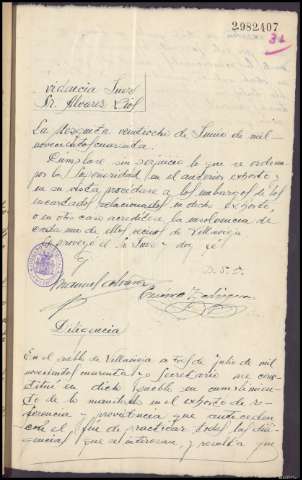 2982407
31
Providencia Juez
Sr. Alvarez Diaz
La Mezquita veintiocho de Junio de mil
novecientos cuarenta.
Cumplase sin perjuicio lo que se ordena
por la Superioridad en el anterior exhorto y
en su vista procedase a los embargos de los
encartados relacionados en dicho exhorto,
o en otro caso acreditese la insolvencia de
cada uno de ellos vecinos de Villavieja
Lo proveyó el Sr Juez y doy fé
Diligencia
En el pueblo de Villavieja a tres de julio de mil
novecientos cuarenta yo Secretario me cons-
titui en dicho pueblo en cumplimien-
to de lo mandado en el exhorto de re-
ferencia y providencia que anteceden
con el fin de practicar todas las dili-
gencias que se interesan, y resulta que